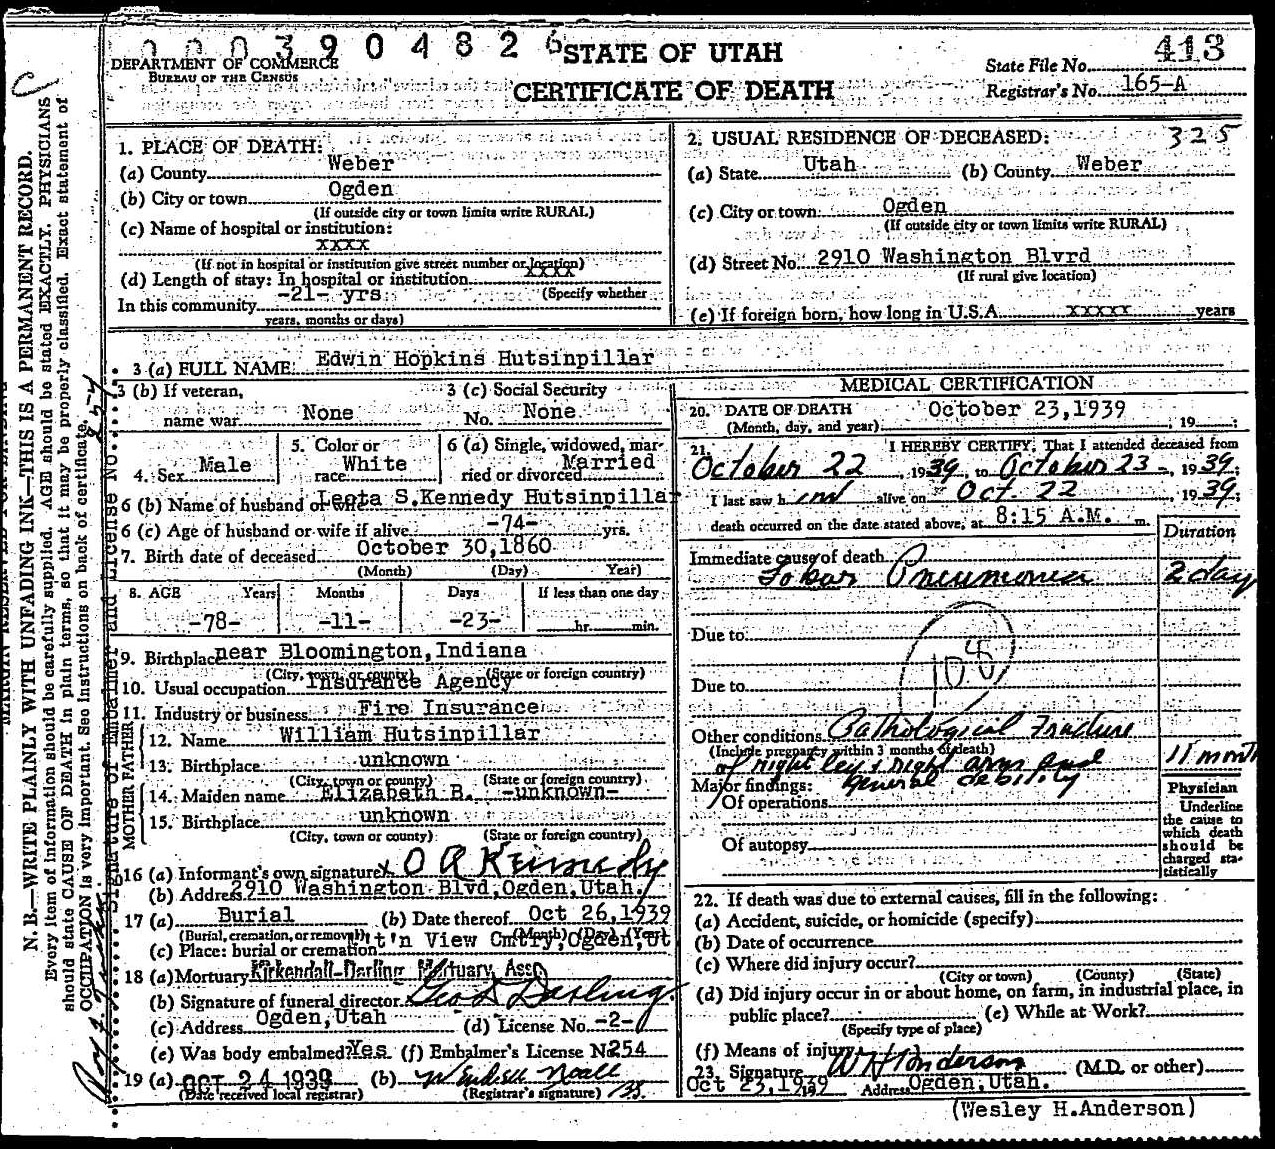 0003904826
STATE OF UTAH
CERTIFICATE OF DEATH
DEPARTMENT OF COMMERCE
BUREAU OF THE CENSUS
413
State File No.
Registrar's No. 165-A
N. B.—WRITE PLAINLY WITH UNFADING INK—THIS IS A PERMANENT RECORD.
Every item of information should be carefully supplied. AGE should be stated EXACTLY. PHYSICIANS
should state CAUSE OF DEATH in plain terms, so that it may be properly classified. Exact statement of
OCCUPATION is very important. See instructions on back of certificate.
Signature of Embalmer and License No.
1. PLACE OF DEATH:
(a) County Weber
(b) City or town Ogden
(If outside city or town limits write RURAL)
(c) Name of hospital or institution:
xxxx
(If not in hospital or institution give street number or location)
(d) Length of stay: In hospital or institution xxxx
(Specify whether
In this community -21- yrs
years, months or days)
2. USUAL RESIDENCE OF DECEASED: 325
(a) State Utah (b) County Weber
(c) City or town Ogden
(If outside city or town limits write RURAL)
(d) Street No. 2910 Washington Blvrd
(If rural give location)
(e) If foreign born, how long in U.S.A. xxxxx years
3 (a) FULL NAME: Edwin Hopkins Hutsinpillar
3 (b) If veteran,
name war None
3 (c) Social Security
No. None
4. Sex Male
5. Color or
race White
6 (a) Single, widowed, mar-
ried or divorced Married
6 (b) Name of husband or wife Leota S.Kennedy Hutsinpillar
6 (c) Age of husband or wife if alive -74- yrs.
7. Birth date of deceased October 30,1860
(Month) (Day) Year)
8. AGE Years Months Days If less than one day
-78- -11- -23- hr. min.
9. Birthplace near Bloomington,Indiana
(City, town or county) (State or foreign country)
10. Usual occupation Insurance Agency
11. Industry or business Fire Insurance
FATHER
12. Name William Hutsinpillar
13. Birthplace unknown
(City, town or county) (State or foreign country)
MOTHER
14. Maiden name Elizabeth B. -unknown-
15. Birthplace unknown
(City, town or county) (State or foreign country)
16 (a) Informant's own signature x O A Kennedy
(b) Address 2910 Washington Blvd,Ogden,Utah.
17 (a) Burial (b) Date thereof Oct 26,1939
(Burial, cremation, or removal) (Month) (Day) (Year)
(c) Place: burial or cremation Mt'n View Cmtry,Ogden,Ut
18 (a) Mortuary Kirkendall-Darling Mortuary Assn
(b) Signature of funeral director Geo D Darling
(c) Address Ogden,Utah (d) License No. -2-
(e) Was body embalmed? Yes (f) Embalmer's License No. 254
19 (a) OCT 24 1939 (b) Wendell Noall
(Date received local registrar) (Registrar's signature)
MEDICAL CERTIFICATION
20. DATE OF DEATH October 23,1939
(Month, day, and year) , 19 ;
21. I HEREBY CERTIFY, That I attended deceased from
October 22, 1939, to October 23-, 1939;
I last saw him alive on Oct. 22, 1939;
death occurred on the date stated above, at 8:15 A.M. m.
Duration
Immediate cause of death
Lobar Pneumonia 2 day
Due to
Due to
Other conditions Pathological Fracture
(Include pregnancy within 3 months of death)
of right leg & right arm and 11 month
general debility
Major findings:
Of operations
Of autopsy
Physician
Underline
the cause to
which death
should be
charged sta-
tistically
22. If death was due to external causes, fill in the following:
(a) Accident, suicide, or homicide (specify)
(b) Date of occurrence
(c) Where did injury occur?
(City or town) (County) (State)
(d) Did injury occur in or about home, on farm, in industrial place, in
public place? (e) While at Work?
(Specify type of place)
(f) Means of injury
23. Signature W H Anderson (M.D. or other)
Oct 23,1939 Address Ogden,Utah.
(Wesley H.Anderson)